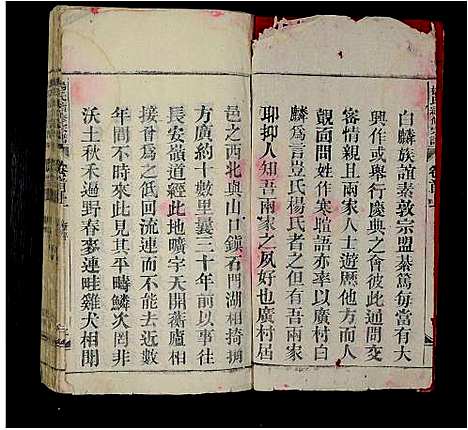 白麟族誼素敦宗盟綦篤每當有大
興作或舉行慶典之會彼此通問交
審情親且兩家人士遊歷他方或有
覿面問姓作寒暄語亦率以廣村白
麟爲言豈氏楊氏者之但有吾兩家
耶抑人知吾兩家之夙好也廣村居
邑之西北與山口鎭石門湖相掎捔
方廣約十數里曩三十年前以事往
長安嶺道經此地曠宇天開薇廬相
接者巳爲之低回流連而不能去近數
年間來此見其平疇鱗次罔非
沃土秋禾過野春麥連畦雞犬相聞